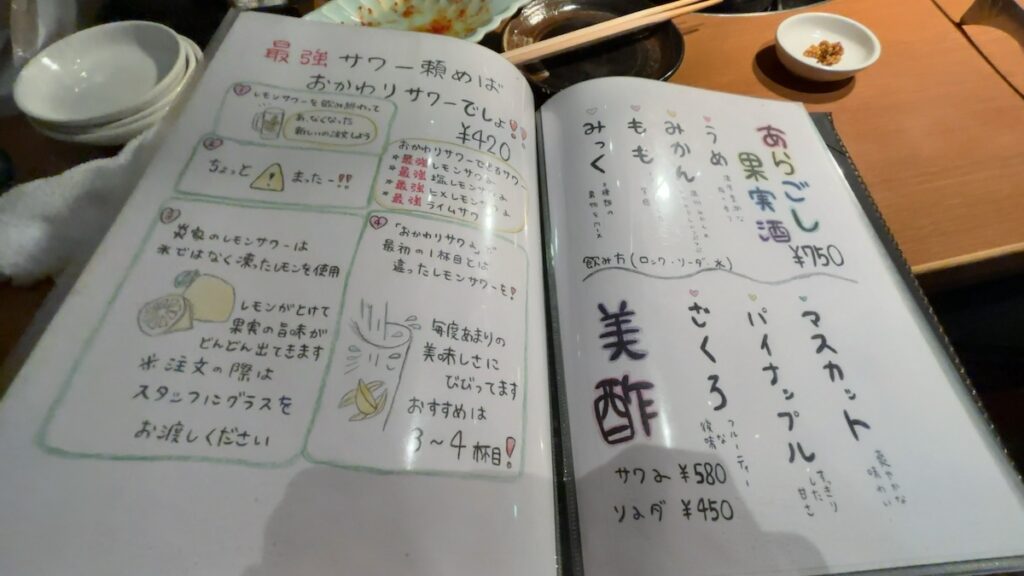 最強サワー頼めば
おかわりサワーでしょ!!
¥420
① レモンサワーを飲み終わって
あ、なくなった
新しいの注文しよう
② ちょっと ⚠ まったー!!
おかわりサワーできるサワー
*最強レモンサワー
*最強塩レモンサワー
*最強ライムサワー
③ 当家のレモンサワーは
氷ではなく凍ったレモンを使用
レモンがとけて
果実の旨味が
どんどん出てきます
※注文の際は
スタッフにグラスを
お渡しください
④ 「おかわりサワー」で
最初の1杯目とは
違ったレモンサワーを!
毎度あまりの
美味しさに
びびってます
おすすめは
3〜4杯目!
あらごし
果実酒
¥750
うめ
みかん
もも
みっく
飲み方(ロック・ソーダ・水)
美酢
マスカット
爽やかな
味わい
パイナップル
すっきり
した甘さ
ざくろ
フルーティー
な
後味
サワー ¥580
ソーダ ¥450